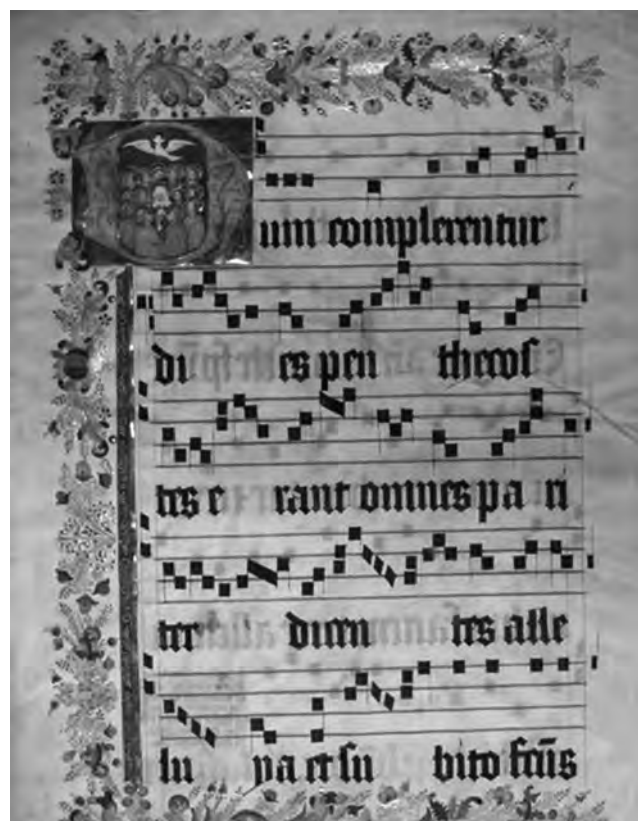 Dum complerentur
di es pen thecos
tes e rant omnes pa ri
ter dicen tes alle
lu ya et su bito fctūs